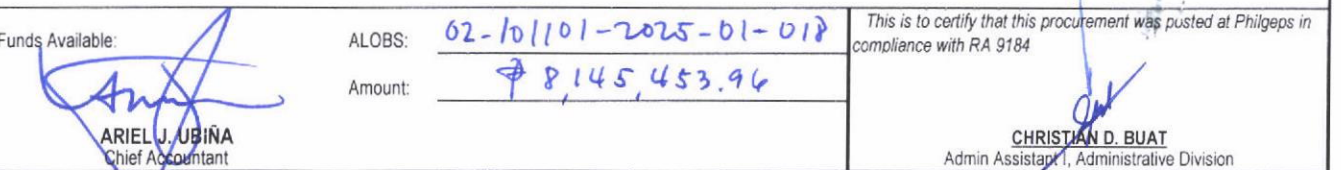 Funds Available:
ALOBS: 02-101101-2025-01-018
Amount: ₱ 8,145,453.96
ARIEL J. UBIÑA
Chief Accountant
This is to certify that this procurement was posted at Philgeps in
compliance with RA 9184
CHRISTIAN D. BUAT
Admin Assistant I, Administrative Division